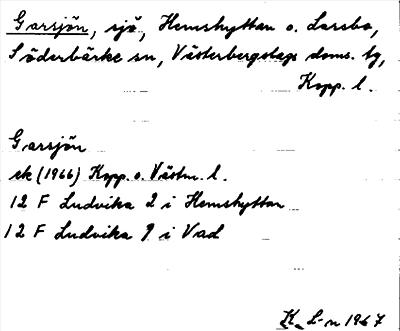 Garsjön, sjö, Hemshyttan o. Larsbo,
Söderbärke sn, Västerbergslags doms. tg,
Kopp. l.
Garsjön
ek (1966) Kopp. o. Västm. l.
12 F Ludvika 2 i Hemshyttan
12 F Ludvika 9 i Vad
K. L-n 1967